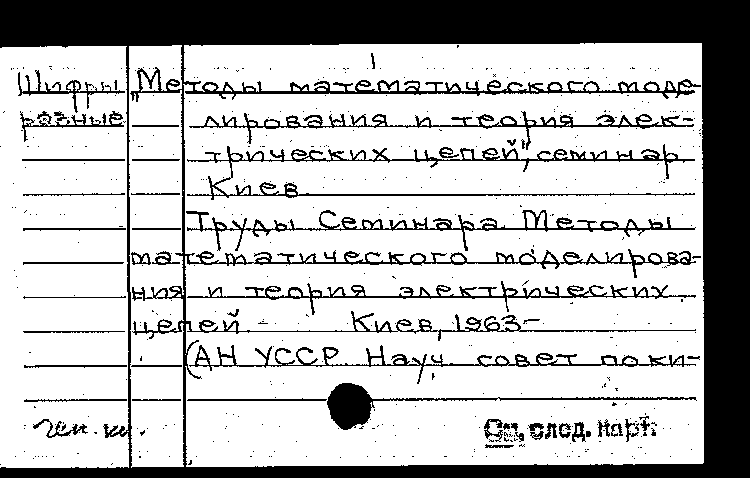 1
Шифры „Методы математического моде-
разные лирования и теория элек-
трических цепей", семинар.
Киев
Труды Семинара Методы
математического моделирова-
ния и теория электрических
цепей - Киев, 1963-
(АН УССР. Науч. совет по ки-
См. след. карт.